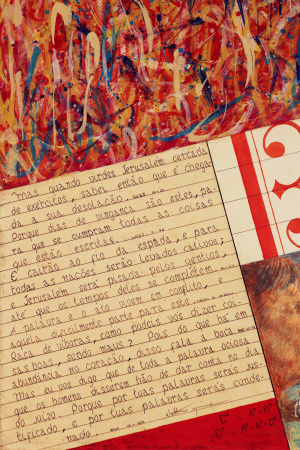 Mas quando virdes Jerusalém cercada
de exércitos, sabei então que é chega-
da a sua desolação.
Porque dias de vingança são estes, pa-
ra que se cumpram todas as coisas
que estão escritas.
E cairão ao fio da espada, e para
todas as nações serão levados cativos;
e Jerusalém será pisada pelos gentios,
até que os tempos deles se completem
A palavra e o ato vivem em conflito, e
aquela dificilmente parte para este
Raça de víboras, como podeis vós dizer coi-
sas boas, sendo maus? Pois do que há em
abundância no coração, disso fala a boca
Mas eu vos digo que de toda a palavra ociosa
que os homens disserem hão de dar conta no dia
do juízo. Porque por tuas palavras serás jus-
tificado, e por tuas palavras serás conde-
nado